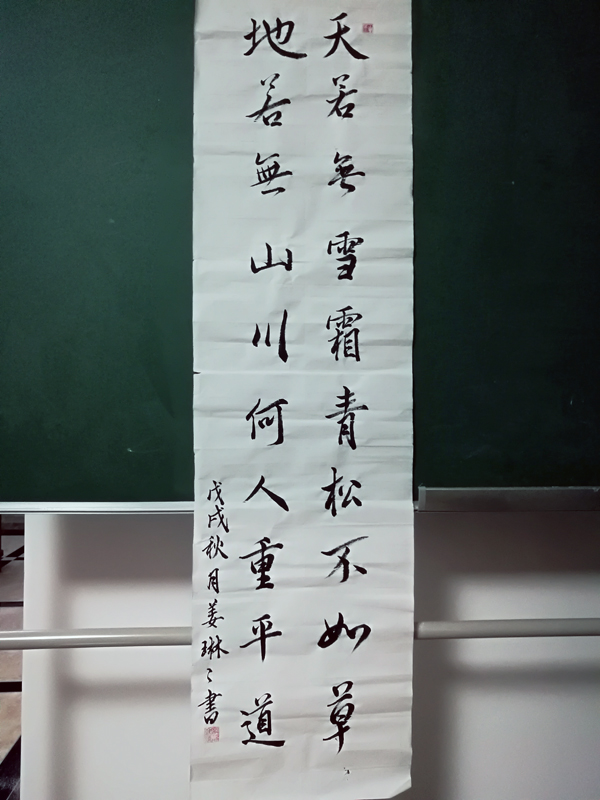 天若無雪霜青松不如草
地若無山川何人重平道
戊戌秋月姜琳〻書